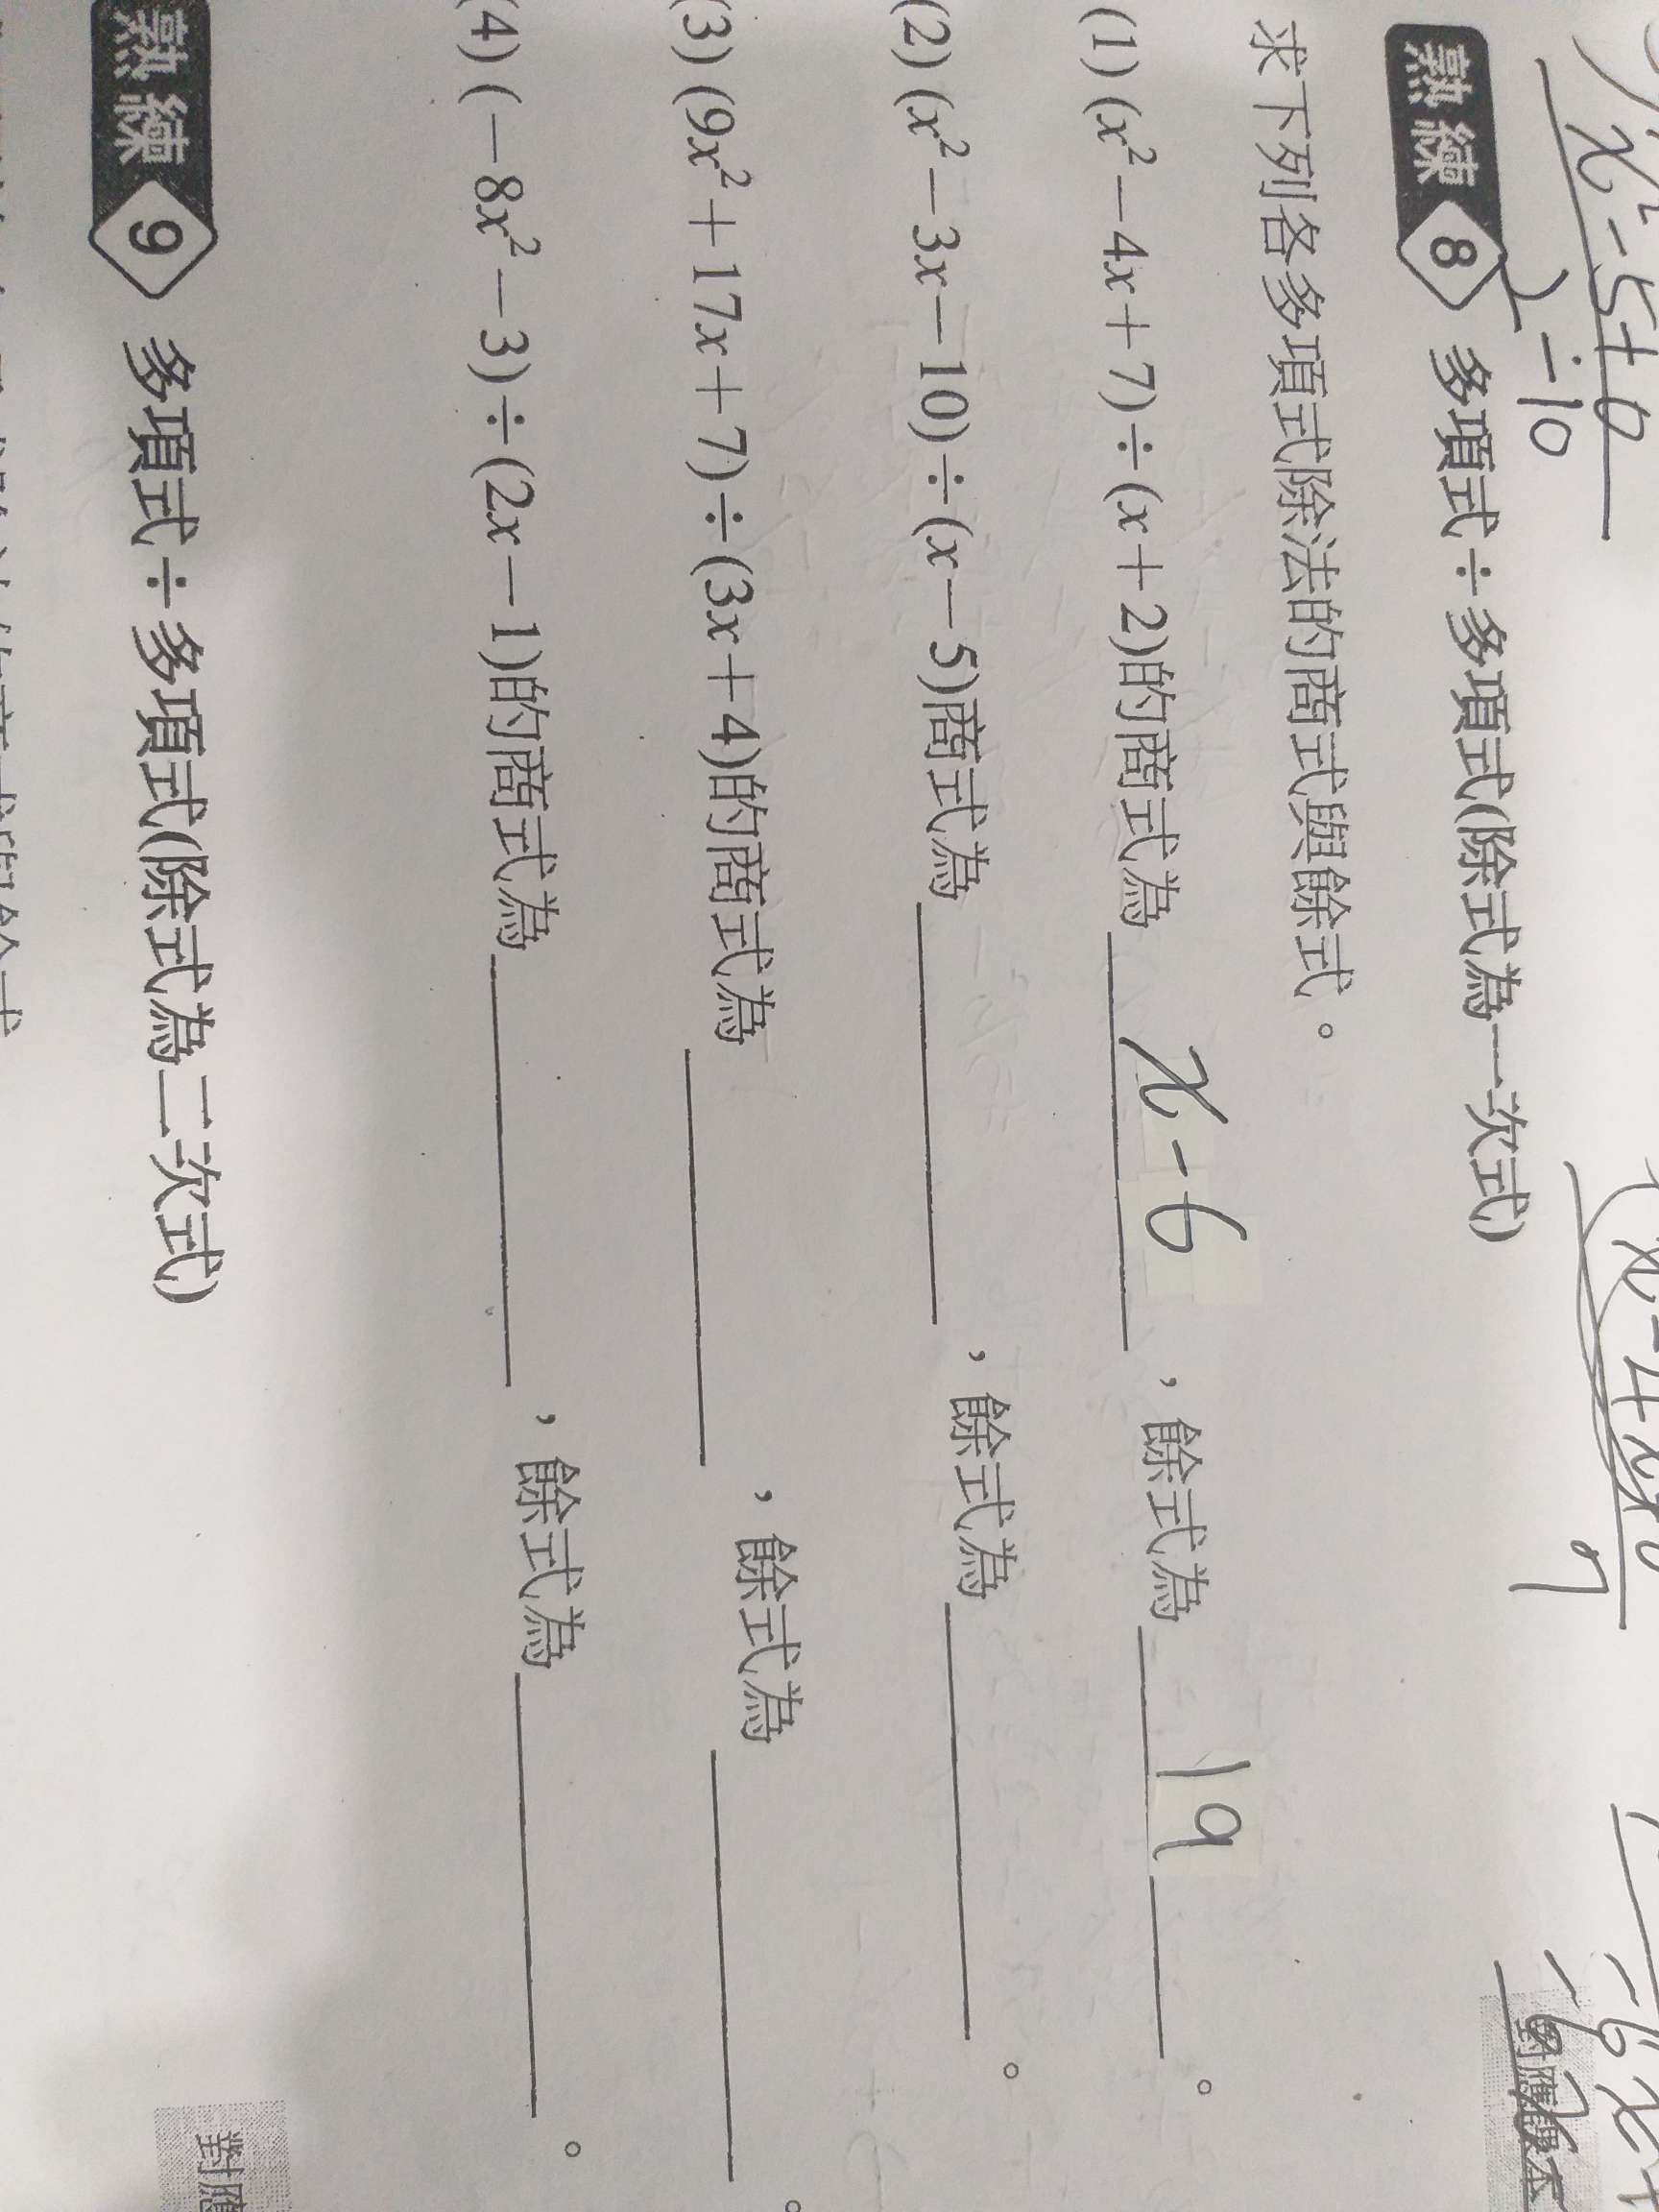 x²-5x+6
÷10
熟練 8 多項式÷多項式(除式為一次式)
求下列各多項式除法的商式與餘式。
(1) (x²-4x+7)÷(x+2)的商式為 x-6 ,餘式為 19 。
(2) (x²-3x-10)÷(x-5)商式為 ,餘式為 。
(3) (9x²+17x+7)÷(3x+4)的商式為 ,餘式為 。
(4) (-8x²-3)÷(2x-1)的商式為 ,餘式為 。
熟練 9 多項式÷多項式(除式為二次式)
對應